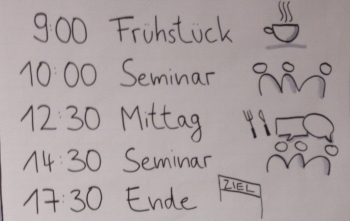 9:00 Frühstück
10:00 Seminar
12:30 Mittag
14:30 Seminar
17:30 Ende ZIEL